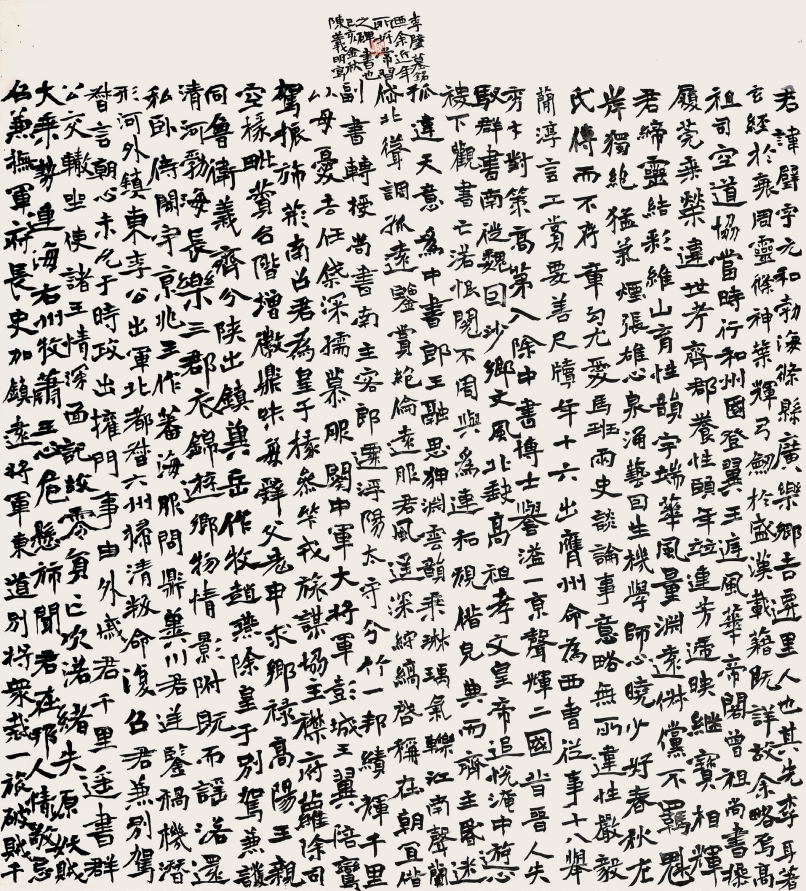 李璧墓銘
西余近年
所常習
之碑書也
己亥金秋
陳義明寫
君諱璧字元和勃海條縣廣樂鄉吉遷里人也其先李耳著
玄經於衰周靈條神葉輝弓劒於盛漢載籍既詳故余略焉高
祖司空道協當時行和州國登翼王庭風華帝閣曾祖尚書操
履莞乘榮違世考齊郡養性頤年竝連芳透映繼寶相輝
君締靈結彩維山育性韻宇端華風量淵遠俶儻不羈魁
岸獨絕猛氣煙張雄心泉涌藝囙生機學師心曉少好春秋左
氏傳而不存章句尤愛馬班兩史談論事意略無所違性嚴毅
簡淳言工賞要善尺牘年十六出膺州命為西書從事十八舉
秀才對策高第入除中書博士譽溢一京聲輝二國昔晉人失
馭群書南從魏囙沙鄉文風北缺高祖孝文皇帝追悅淹中遊心
稷下觀書亡落恨閱不周與為連和規借完典而齊主昏迷
孤違天意為中書郎王融思狎淵雲韻乘琳瑀氣轢江南聲蘭
岱北聳調孤遠鑒賞絕倫遠服君風遙深紵縞啓稱在朝宜借
副書轉授尚書南主客郎遷浮陽太守分竹一邦績輝千里
以母憂去任縈深孺慕服闋中軍大將軍彭城王翼陪鑾
駕振旆荊南召君為皇子掾參竿戎旅謀協主襟府罷除司
空掾毗贊台階增徽鼎味每辭父老申求鄉祿高陽王親
同魯衛義齊分陝出鎮冀岳作牧趙燕除皇子別駕兼護
清河勃海長樂三郡衣錦遊鄉物情影附既而謠落還
私卧侍閭閈京兆王作蕃海服問鼎冀川君逆鑒禍機潛
形河外鎮東李公出軍北都督六州掃清叛命復召君兼別駕
督言朝心未允于時政出權門事由外戚君千里遙書群
公交轍坐使諸王情深面記故零負亡次落緒失原伏賊
大乘勢連海右州牧蕭王心危懸旆聞君在邦人情敬忌
召兼撫軍府長史加鎮遠將軍東道別將眾裁一旅破賊千